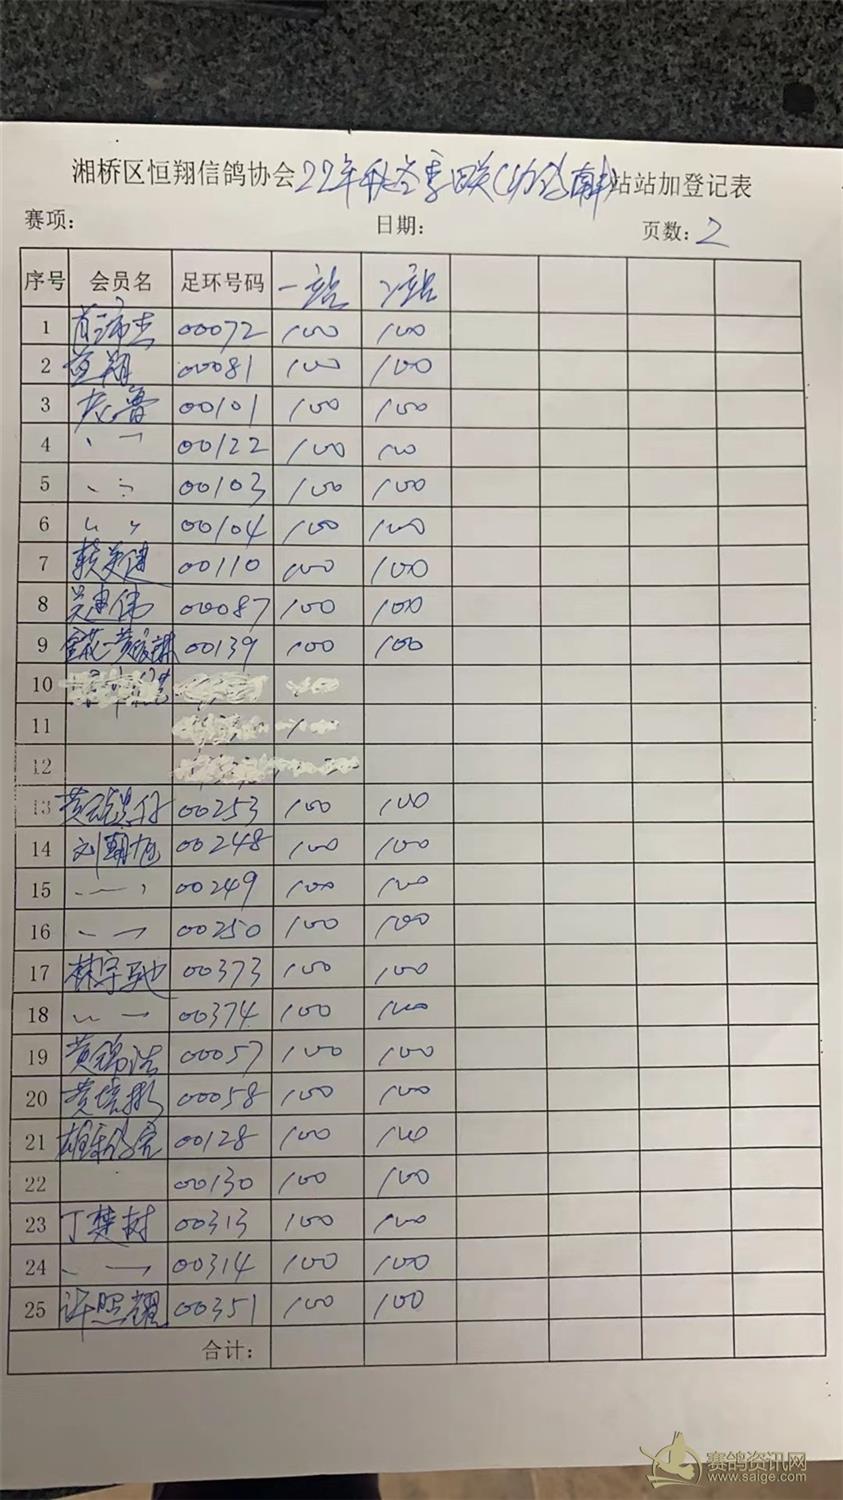 湘桥区恒翔信鸽协会22年秋冬季联(幼鸽南丰)站站加登记表
赛项: 日期: 页数: 2
序号 会员名 足环号码 一站 2站
1 00072 100 100
2 翔 00081 100 100
3 龙鲁 00101 100 100
4 00122 100 100
5 00103 100 100
6 00104 100 100
7 赖英建 00110 100 100
8 吴建伟 00087 100 100
9 00139 100 100
10
11
12
13 00253 100 100
14 刘朝旭 00248 100 100
15 00249 100 100
16 00250 100 100
17 林宇驰 00373 100 100
18 00374 100 100
19 黄锦浩 00057 100 100
20 黄培彬 00058 100 100
21 00128 100 100
22 00130 100 100
23 丁楚树 00313 100 100
24 00314 100 100
25 许照耀 00351 100 100
合计:
赛鸽资讯网
www.saige.com